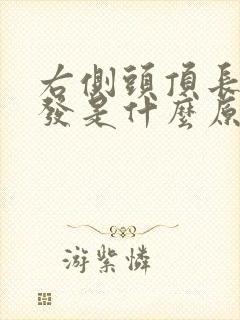 右側頭頂長
發是什麼原
游紫憐